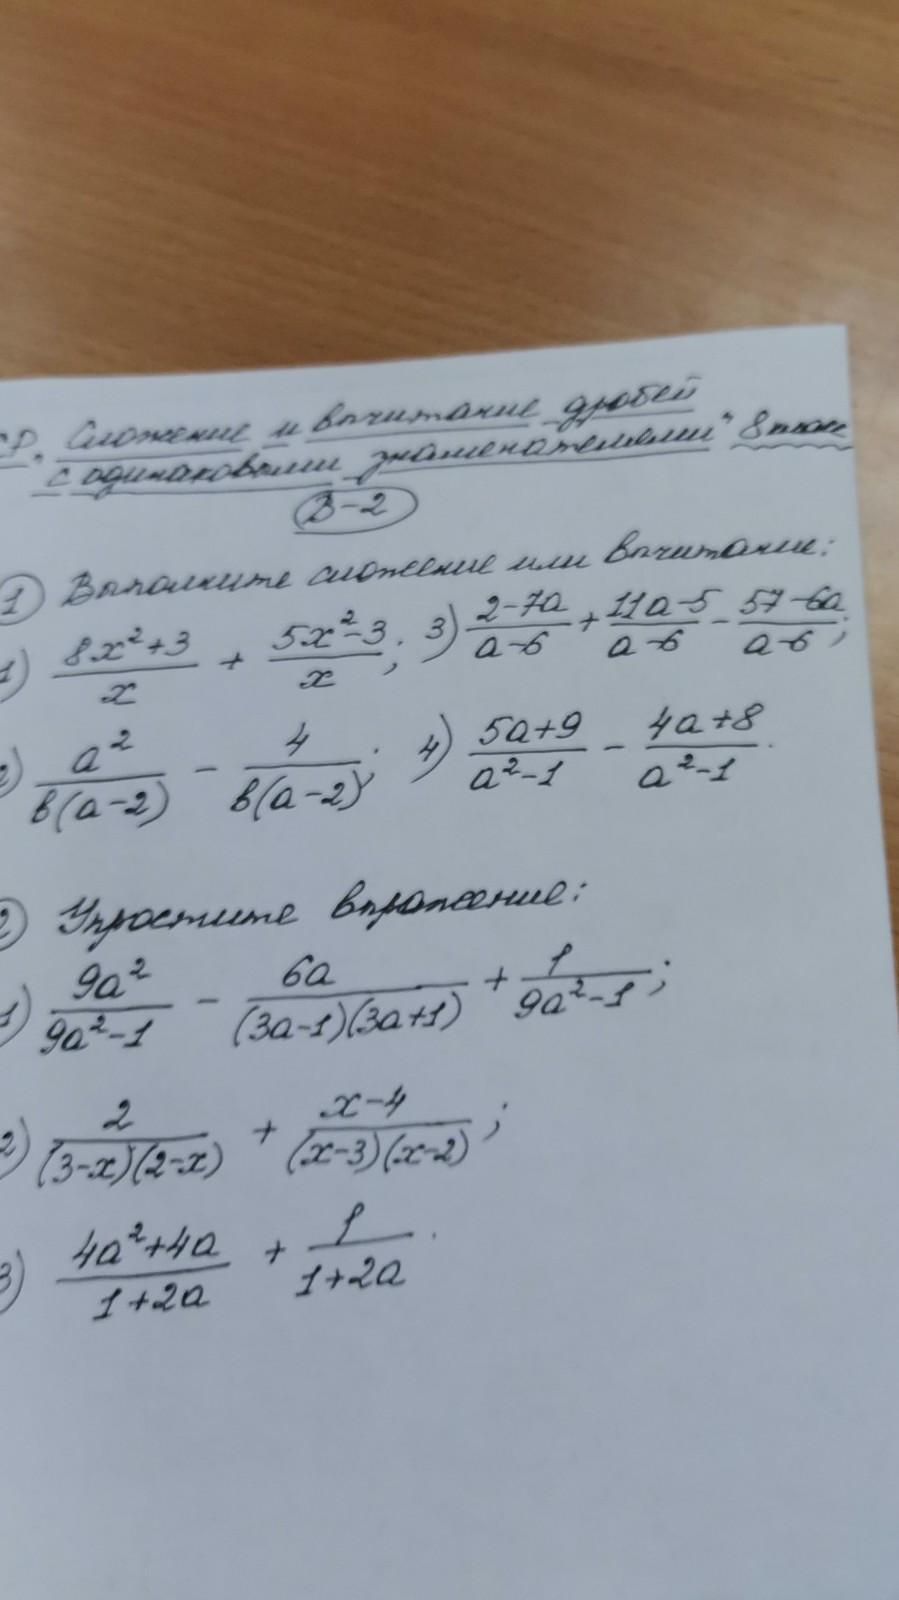 СР. „Сложение и вычитание дробей
с одинаковыми знаменателями" 8 класс
В-2
1 Выполните сложение или вычитание:
1) (8x²+3)/x + (5x²-3)/x; 3) (2-7a)/(a-6) + (11a-5)/(a-6) - (57-6a)/(a-6);
2) a²/(b(a-2)) - 4/(b(a-2)); 4) (5a+9)/(a²-1) - (4a+8)/(a²-1).
2 Упростите выражение:
1) 9a²/(9a²-1) - 6a/((3a-1)(3a+1)) + 1/(9a²-1);
2) 2/((3-x)(2-x)) + (x-4)/((x-3)(x-2));
3) (4a²+4a)/(1+2a) + 1/(1+2a).